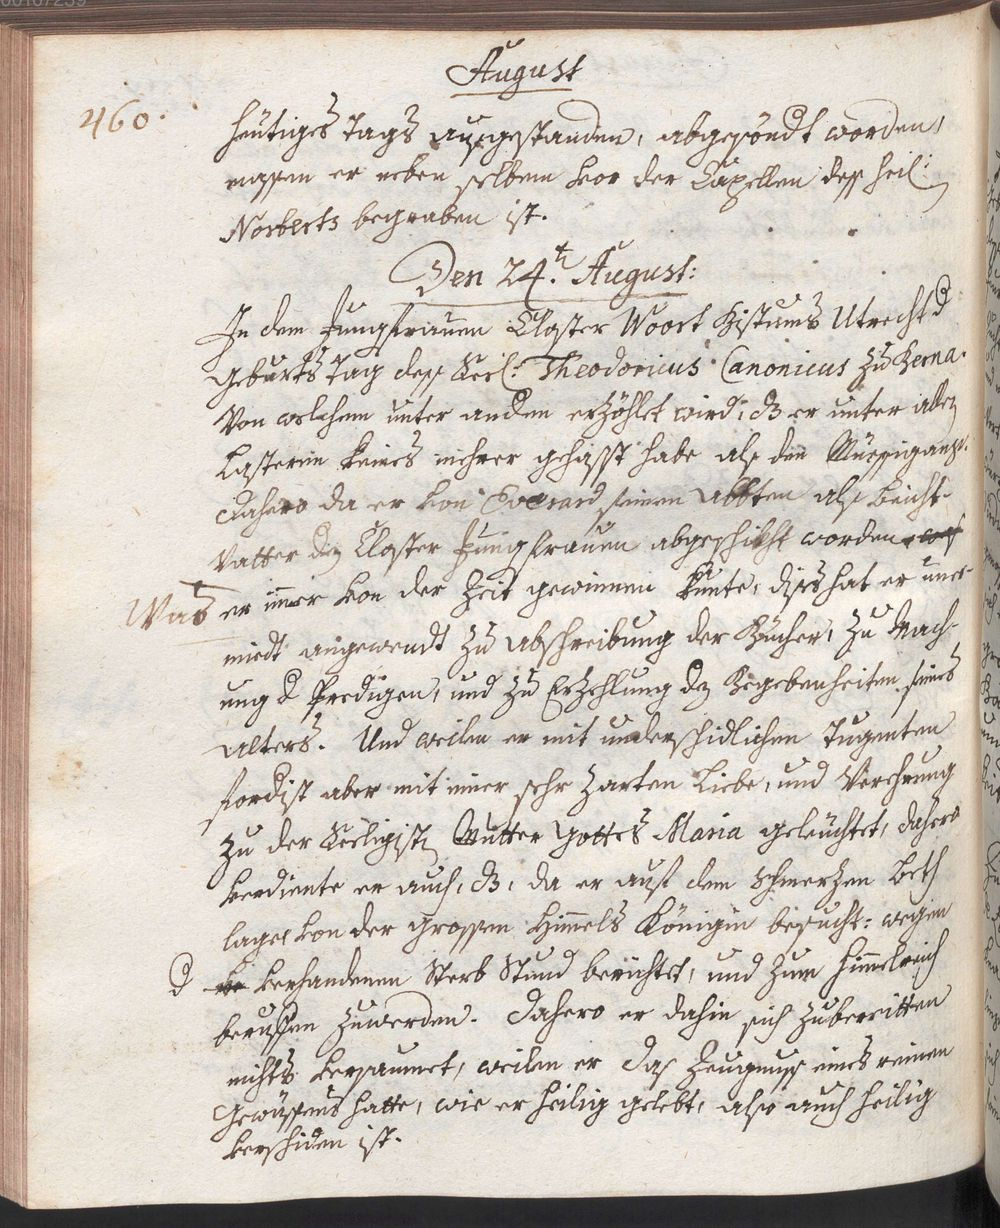 August
460.
heütiges Tags außgestanden, abgesöndt worden,
massen er neben selbem vor der Capellen deß heil:
Norberts begraben ist.
Den 24.t August:
In dem Jungfrauen Closter Woort Bistums Utrecht d
Geburts Tag deß Seel: Theodoricus Canonicus zu Berna.
Von welchem unter anden erzöhlet wird, dz er unter allen
Lasteren keines mehrer gehasst habe alß den Müessigang.
Dahero da er von Everard seinen Abbten alß Beicht-
Vatter den Closter Jungfrauen abgeschickt worden
Was er immer von der Zeit gewinnen kunte, dises hat er uner-
miedt angewendt zu Abschreibung der Bücher, zu Mach-
ung d Predigen, und zu Erzehlung der Begebenheiten seines
Alters. Und weilen er mit underschidlichen Tugenten
fordist aber mit einer sehr zarten Liebe, und Verehrung
zu der Seeligisten Mutter Gottes Maria geleüchtet, dahero
verdiente er auch, dz, da er auf dem Schmertzen Beth
lage, von der grossen Himmels Königin besucht: wegen
d verhandenen Sterb Stund berichtet, und zum Himmelreich
beruffen zuwerden. Dahero er dahin sich zubereitten
nichts versaumet, weilen er das Zeugnuß eines reinen
Gewüssens hatte, wie er heilig gelebt, also auch heilig
verschiden ist.